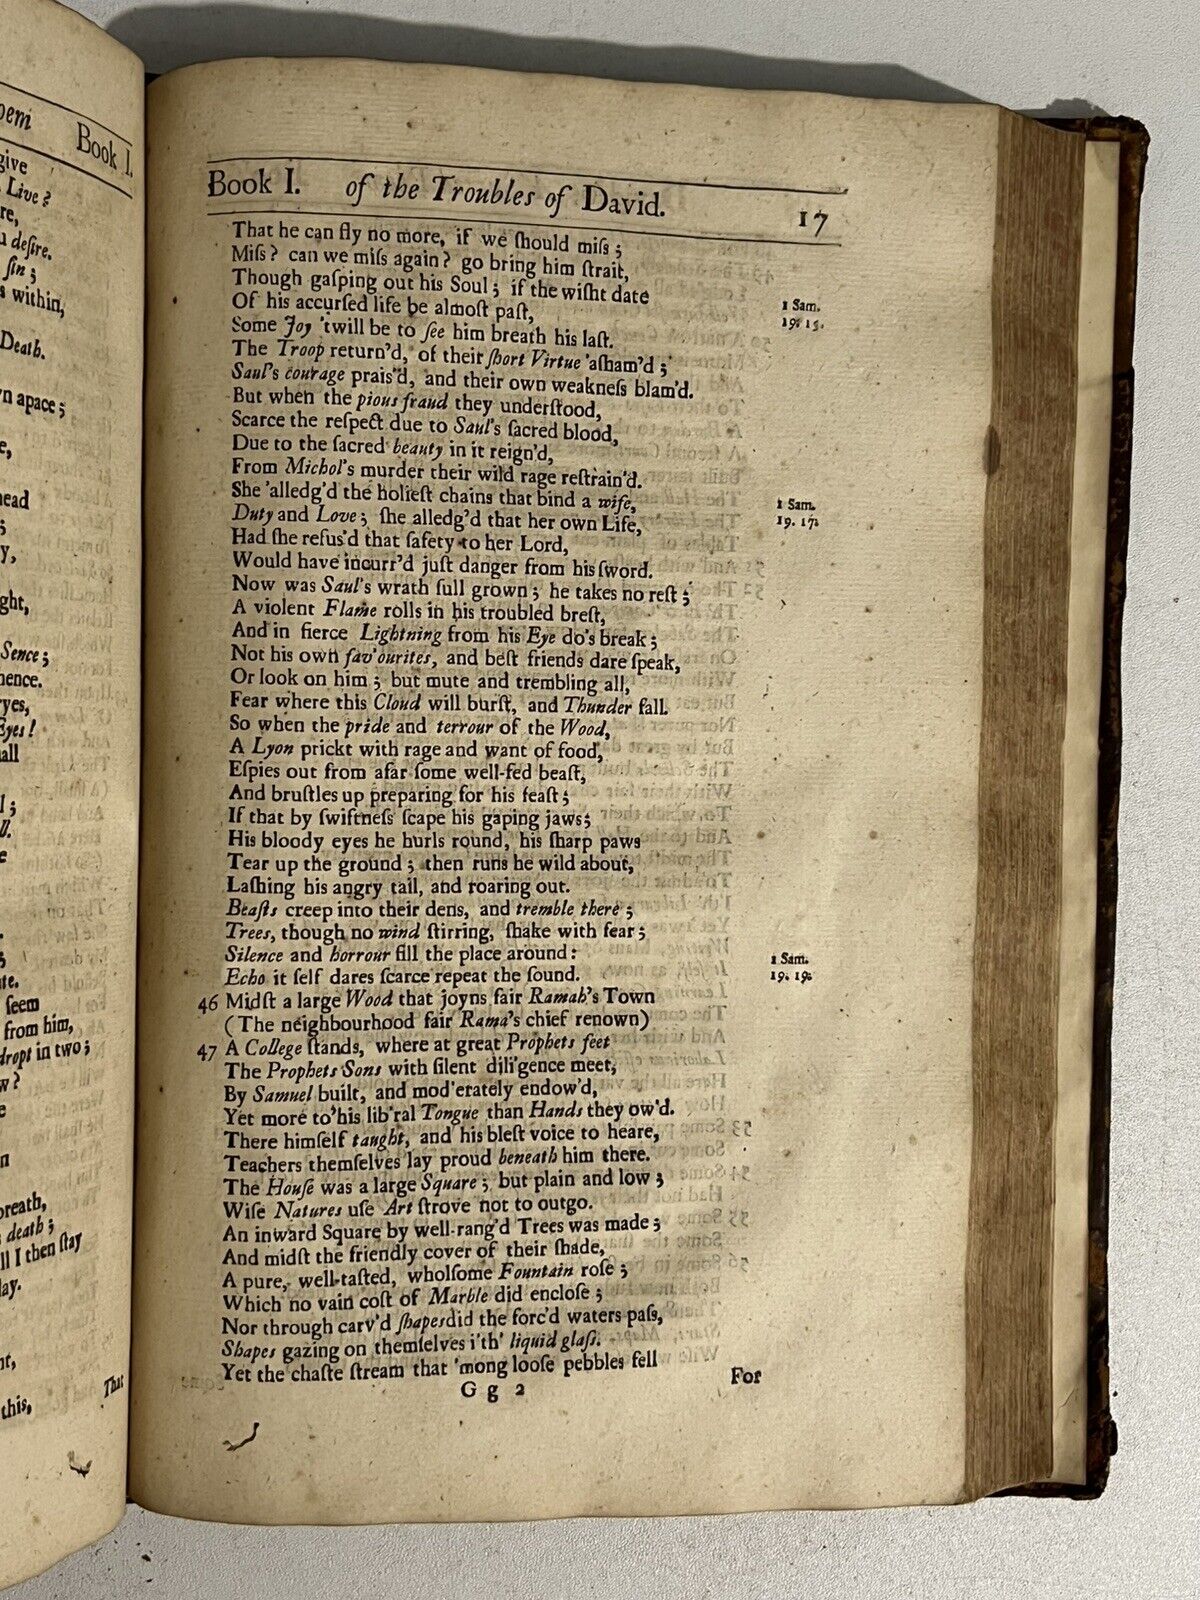 oem Book I.
give
Live?
re,
u deſire.
ſin;
s within,
Death.
n apace;
e,
ead
;
y,
ght,
Sence;
nence.
ryes,
Eyes!
all
l;
ll.
e
.
;
te.
ſeem
from him,
dropt in two;
w?
e
n
breath,
death;
ll I then ſtay
lay.
t,
this,
That
Book I. of the Troubles of David. 17
That he can fly no more, if we ſhould miſs;
Miſs? can we miſs again? go bring him ſtrait,
Though gaſping out his Soul; if the wiſht date
Of his accurſed life be almoſt paſt,
1 Sam.
19. 15.
Some Joy 'twill be to ſee him breath his laſt.
The Troop return'd, of their ſhort Virtue 'aſham'd;
Saul's courage prais'd, and their own weakneſs blam'd.
But when the pious fraud they underſtood,
Scarce the reſpect due to Saul's ſacred blood,
Due to the ſacred beauty in it reign'd,
From Michol's murder their wild rage reſtrain'd.
She 'alledg'd the holieſt chains that bind a wife,
1 Sam.
Duty and Love; ſhe alledg'd that her own Life,
19. 17.
Had ſhe refus'd that ſafety to her Lord,
Would have incurr'd juſt danger from his ſword.
Now was Saul's wrath full grown; he takes no reſt;
A violent Flame rolls in his troubled breſt,
And in fierce Lightning from his Eye do's break;
Not his own fav'ourites, and beſt friends dare ſpeak,
Or look on him; but mute and trembling all,
Fear where this Cloud will burſt, and Thunder fall.
So when the pride and terrour of the Wood,
A Lyon prickt with rage and want of food,
Eſpies out from afar ſome well-fed beaſt,
And bruſtles up preparing for his feaſt;
If that by ſwiftneſs ſcape his gaping jaws;
His bloody eyes he hurls round, his ſharp paws
Tear up the ground; then runs he wild about,
Laſhing his angry tail, and roaring out.
Beaſts creep into their dens, and tremble there;
Trees, though no wind ſtirring, ſhake with fear;
Silence and horrour fill the place around:
1 Sam.
Echo it ſelf dares ſcarce repeat the ſound.
19. 19.
46 Midſt a large Wood that joyns fair Ramah's Town
(The neighbourhood fair Rama's chief renown)
47 A College ſtands, where at great Prophets feet
The Prophets Sons with ſilent diligence meet,
By Samuel built, and mod'erately endow'd,
Yet more to'his lib'ral Tongue than Hands they ow'd.
There himſelf taught, and his bleſt voice to heare,
Teachers themſelves lay proud beneath him there.
The Houſe was a large Square; but plain and low;
Wiſe Natures uſe Art ſtrove not to outgo.
An inward Square by well-rang'd Trees was made;
And midſt the friendly cover of their ſhade,
A pure, well-taſted, wholſome Fountain roſe;
Which no vain coſt of Marble did encloſe;
Nor through carv'd ſhapes did the forc'd waters paſs,
Shapes gazing on themſelves i'th' liquid glaſs.
Yet the chaſte ſtream that 'mong looſe pebbles fell
G g 2 For